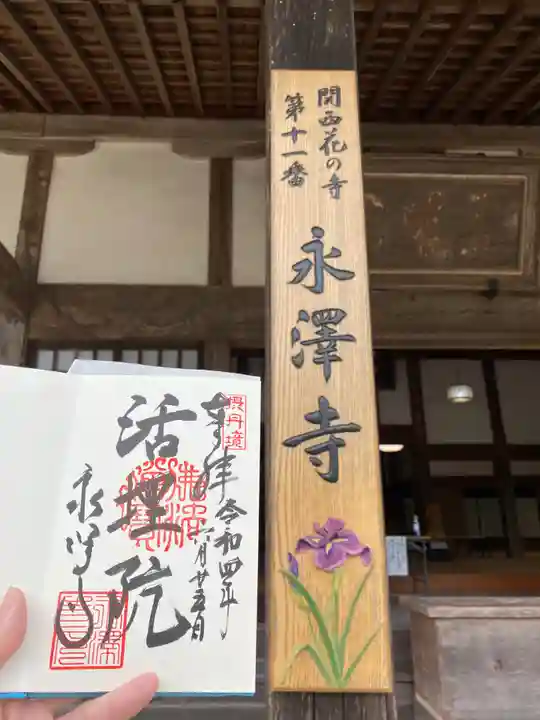 関西花の寺
第十一番
永澤寺
摂丹境
奉拝
令和四年
六月廿五日
活埋院
永澤寺